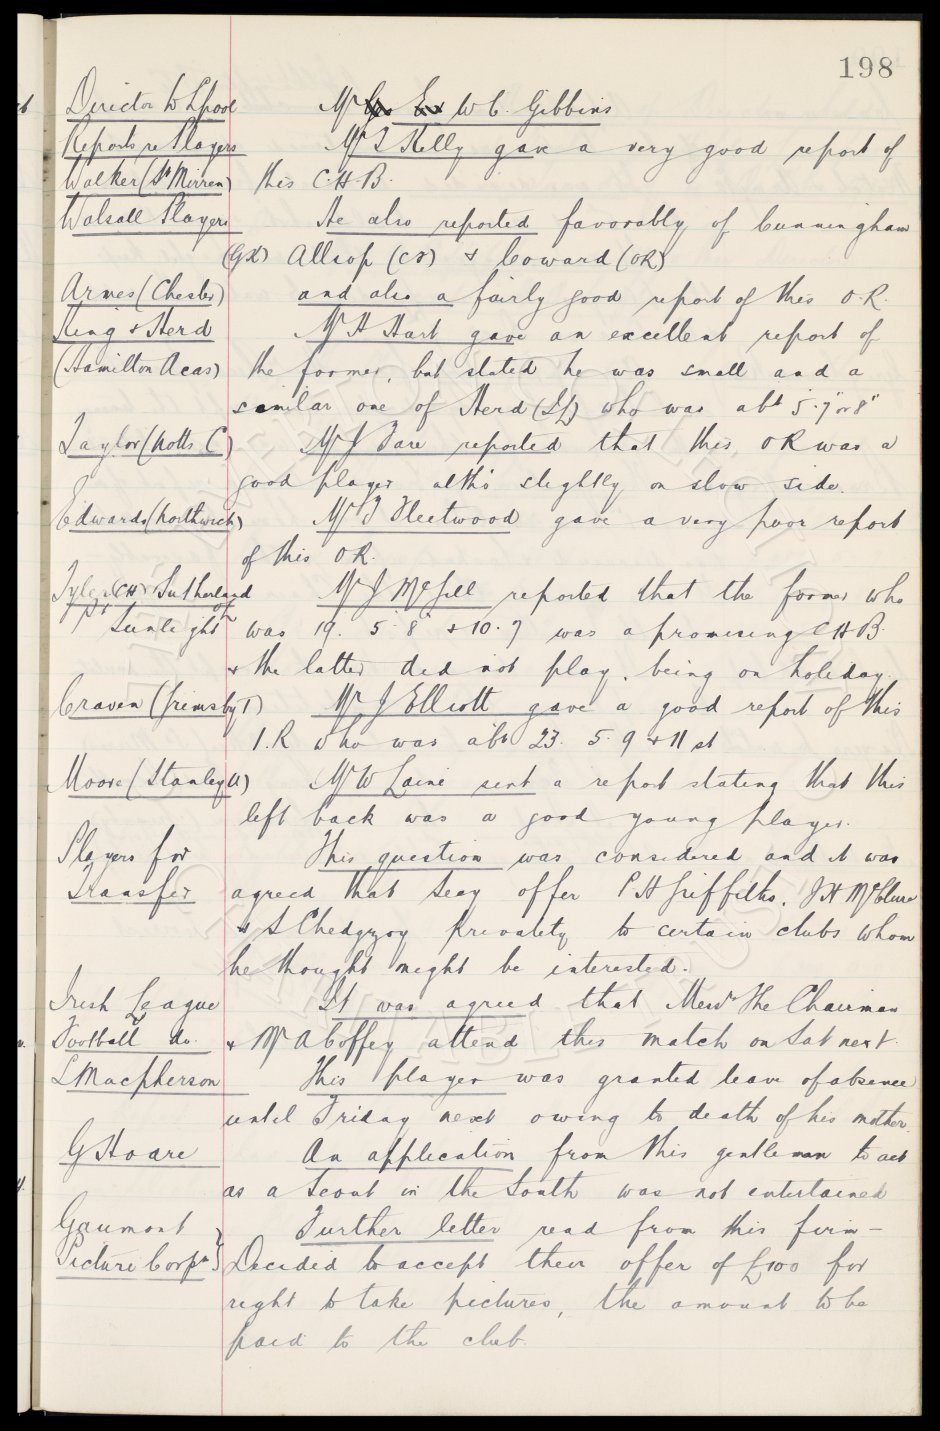 198
Director to L'pool Mr W C. Gibbins
Reports re Players Mr T Kelly gave a very good report of
Walker (St Mirren) this C.H.B.
Walsall Players He also reported favorably of Cunningham
(GK) Allsop (CF) & Coward (OR)
Armes (Chester) and also a fairly good report of this O.R.
King & Herd Mr H Hart gave an excellent report of
(Hamilton Acas) the former, but stated he was small and a
similar one of Herd (LH) who was abt 5.7" or 8"
Taylor (Notts C) Mr J Fare reported that this OR was a
good player altho' slightly on slow side.
Edwards (Northwich) Mr T Fleetwood gave a very poor report
of this OR.
Tyler (CH) & Sutherland Mr J McGill reported that the former who
of Pt Sunlight was 19. 5.8 & 10.7 was a promising C.H.B.
& the latter did not play, being on holiday.
Craven (Grimsby T) Mr J Elliott gave a good report of this
I.R who was abt 23. 5.9 & 11 st
Moore (Stanley U) Mr W Laine sent a report stating that this
left back was a good young player.
Players for This question was considered and it was
Transfer agreed that Secy offer P H Griffiths, J H McClure
& S Chedgzoy privately to certain clubs whom
he thought might be interested.
Irish League It was agreed that Messrs The Chairman
Football do. & Mr A Coffey attend this match on Sat next.
L Macpherson This player was granted leave of absence
until Friday next owing to death of his mother.
G Hoare An application from this gentleman to act
as a Scout in the South was not entertained
Gaumont Further letter read from this firm –
Picture Corpn } Decided to accept their offer of £100 for
right to take pictures, the amount to be
paid to the club.